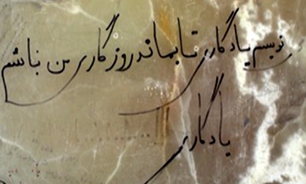 نویسم یادگاری تا بماند روزگاری من نباشم
یادگاری